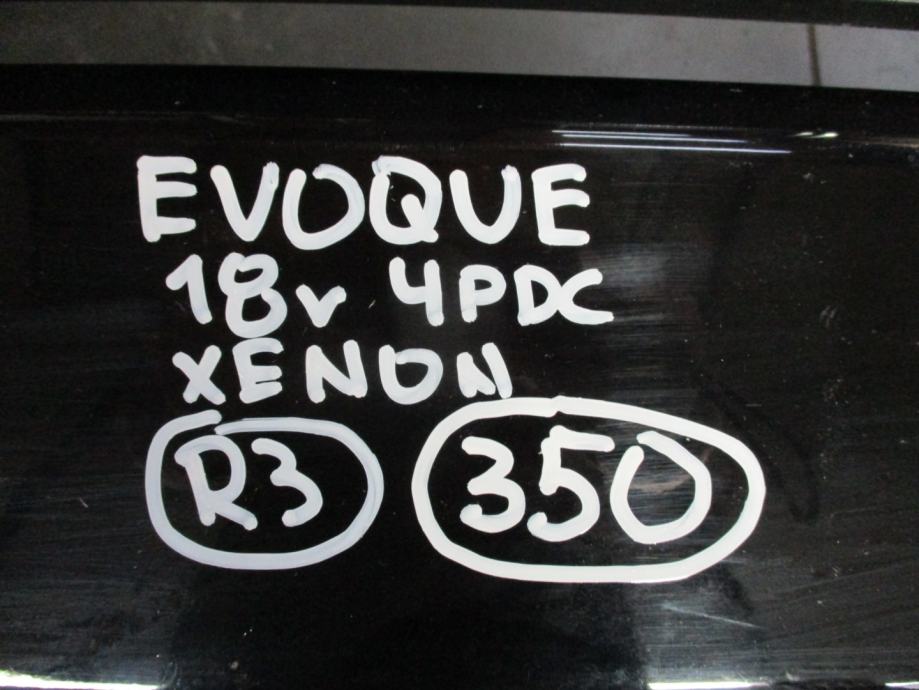 EVOQUE
18r 4PDC
XENON
R3 350